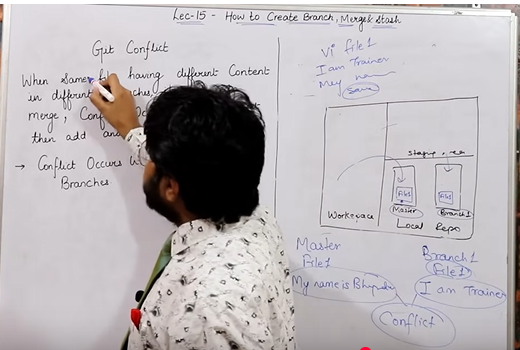 Lec-15 - How to Create Branch, Merge & Stash
Git Conflict
When same having different Content
in different
merge, Conf
then add an
→ Conflict Occurs W
Branches
Vi file1
I am Trainer
My
Save
Workspace
File1
File1
Master
Branch1
Local Repo
Master
File1
My name is
Branch1
File1
I am Trainer
Conflict